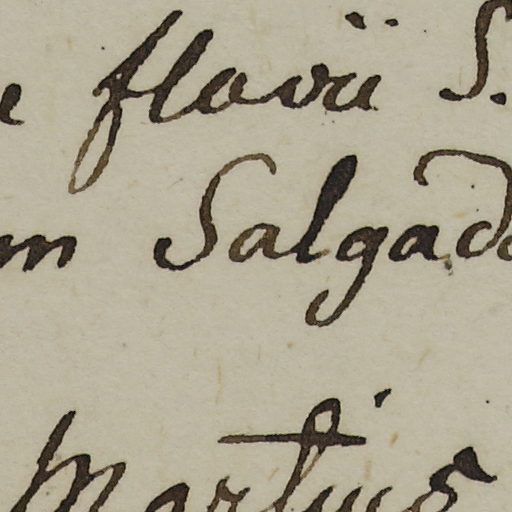 flavii S.
m Salgado
Martius